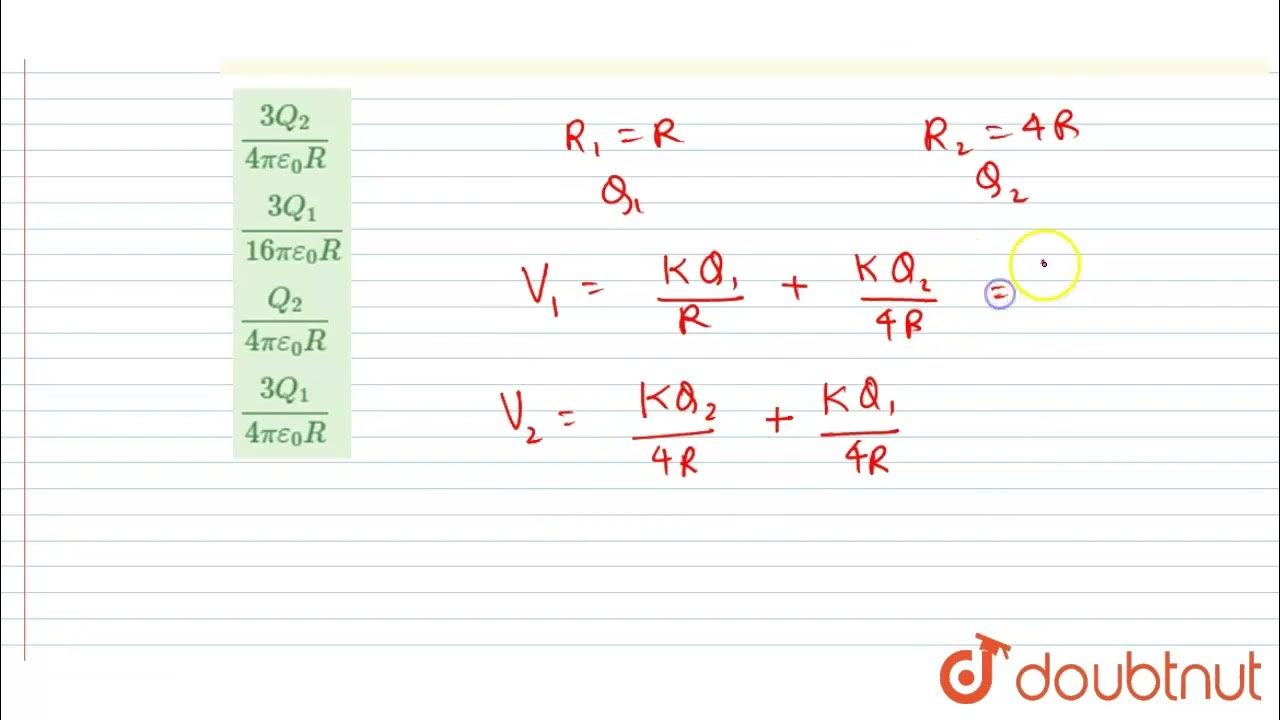 3Q₂
4πε₀R
3Q₁
16πε₀R
Q₂
4πε₀R
3Q₁
4πε₀R
R₁ = R
R₂ = 4R
Q₁
Q₂
V₁ = KQ₁/R + KQ₂/4R =
V₂ = KQ₂/4R + KQ₁/4R
doubtnut